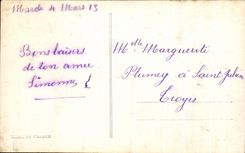 Mardi 4 Mars 13
Bons baisers
de ton amie
Simonne
Mlle Marguerite
Plumey à Saint Julien
Troyes